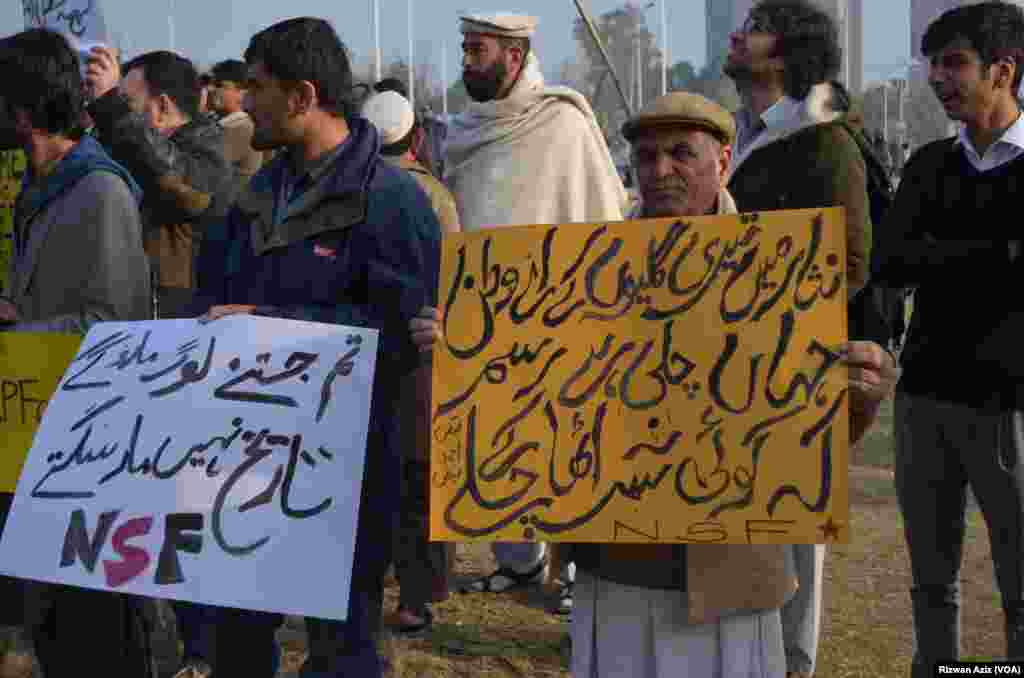 تم جتنے لوگ مارو گے
تاریخ نہیں مار سکتے
NSF
نثار میں تیری گلیوں کے اے وطن
کہ جہاں چلی ہے رسم
کہ کوئی نہ سر اٹھا کے چلے
NSF
PF
Rizwan Aziz (VOA)